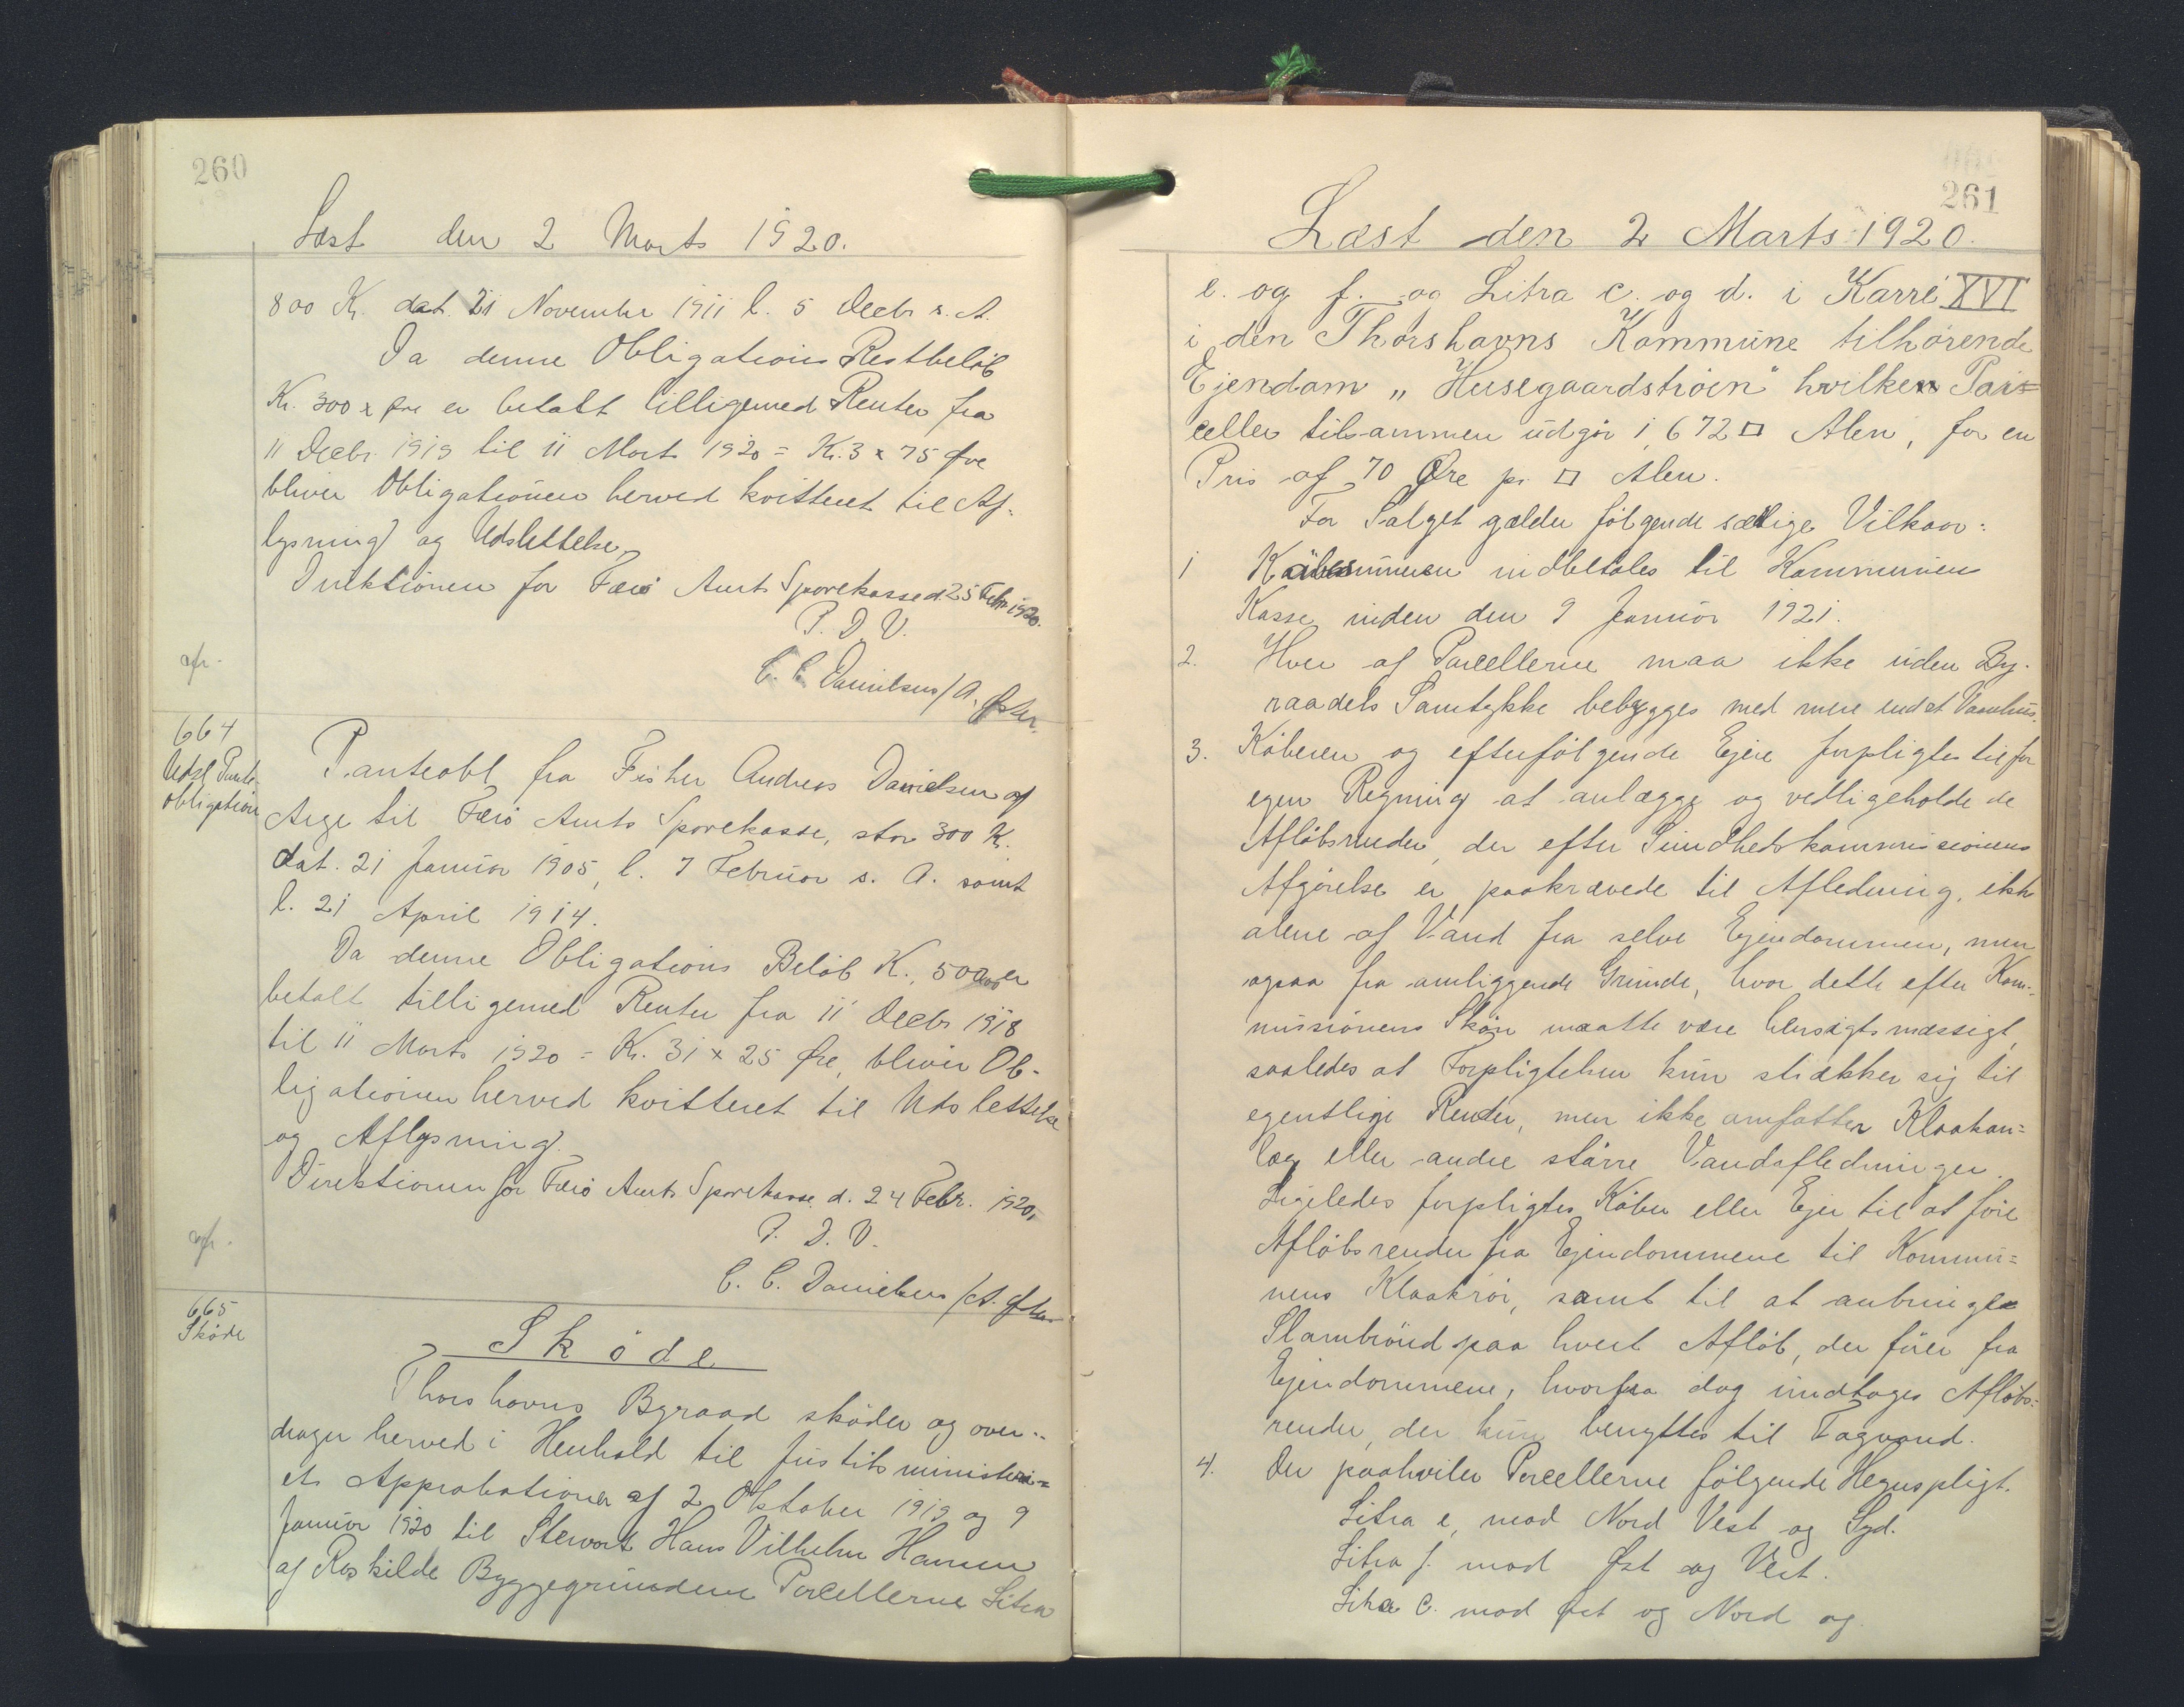 260
Læst den 2 Marts 1920.
800 Kr. dat. 21 November 1911 l. 5 Decbr s. A.
Da denne Obligations Restbeløb
Kr. 300 x Øre er betalt tilligemed Renter fra
11 Decbr 1919 til 11 Marts 1920 = Kr. 3 x 75 Øre
bliver Obligationen herved kvitteret til Af-
lysning og Udslettelse,
Direktionen for Færø Amts Sparekasse d. 25 Febr 1920.
P. D. V.
C. C. Danielsen / A.
afr.
664
Udsl Pante-
obligation
Panteobl fra Fisker Andreas Danielsen af
Arge til Færø Amts Sparekasse, stor 300 Kr.
dat. 21 Januar 1905, l. 7 Februar s. A. samt
l. 21 April 1914.
Da denne Obligations Beløb K. 500 er
betalt tilligemed Renter fra 11 Decbr 1918
til 11 Marts 1920 = Kr. 31 x 25 Øre, bliver Ob-
ligationen herved kvitteret til Udslettelse
og Aflysning.
Direktionen for Færø Amts Sparekasse d. 24 Febr. 1920,
P. D. V.
C. C. Danielsen / A.
afr.
665
Skøde
Skøde
Thorshavns Byraad skøder og over-
drager herved i Henhold til Justitsministeri=
ets Approbationer af 2 Oktober 1919 og 9
Januar 1920 til Stewart Hans Vilhelm Hansen
af Roskilde Byggegrundene Parcellerne Litra
261
Læst den 2 Marts 1920.
e. og f. og Litra c. og d. i Karré XVI
i den Thorshavns Kommune tilhørende
Ejendom „Husegaardstrøen" hvilken Par=
celler tilsammen udgør 1672 □ Alen, for en
Pris af 70 Øre pr. □ Alen.
For Salget gælder følgende særlige Vilkaar:
1 Købesummen indbetales til Kommunens
Kasse inden den 9 Januar 1921.
2. Hver af Parcellerne maa ikke uden By-
raadets Samtykke bebygges med mere end et Vaanhus.
3. Køberen og efterfølgende Ejere forpligtes til for
egen Regning at anlægge og vedligeholde de
Afløbsrender, der efter Sundhedskommissionens
Afgørelse er paakrævede til Afledning, ikke
alene af Vand fra selve Ejendommen, men
ogsaa fra omliggende Grunde, hvor dette efter Kom-
missionens Skøn maatte være hensigtsmæssigt,
saaledes at Forpligtelsen kun strækker sig til
egentlige Render, men ikke omfatter Kloakan=
læg eller andre større Vandafledninger.
Ligeledes forpligtes Køber eller Ejer til at føre
Afløbsrender fra Ejendommene til Kommu=
nens Kloakrør, samt til at anbringe
Slambrønd paa hvert Afløb, der fører fra
Ejendommene, hvorfra dog undtages Afløbs=
render, der kun benyttes til Tagvand.
4. Der paahviler Parcellerne følgende Hegnspligt.
Litra e, mod Nord Vest og Syd.
Litra f. mod Øst og Vest.
Litra c. mod Øst og Nord og